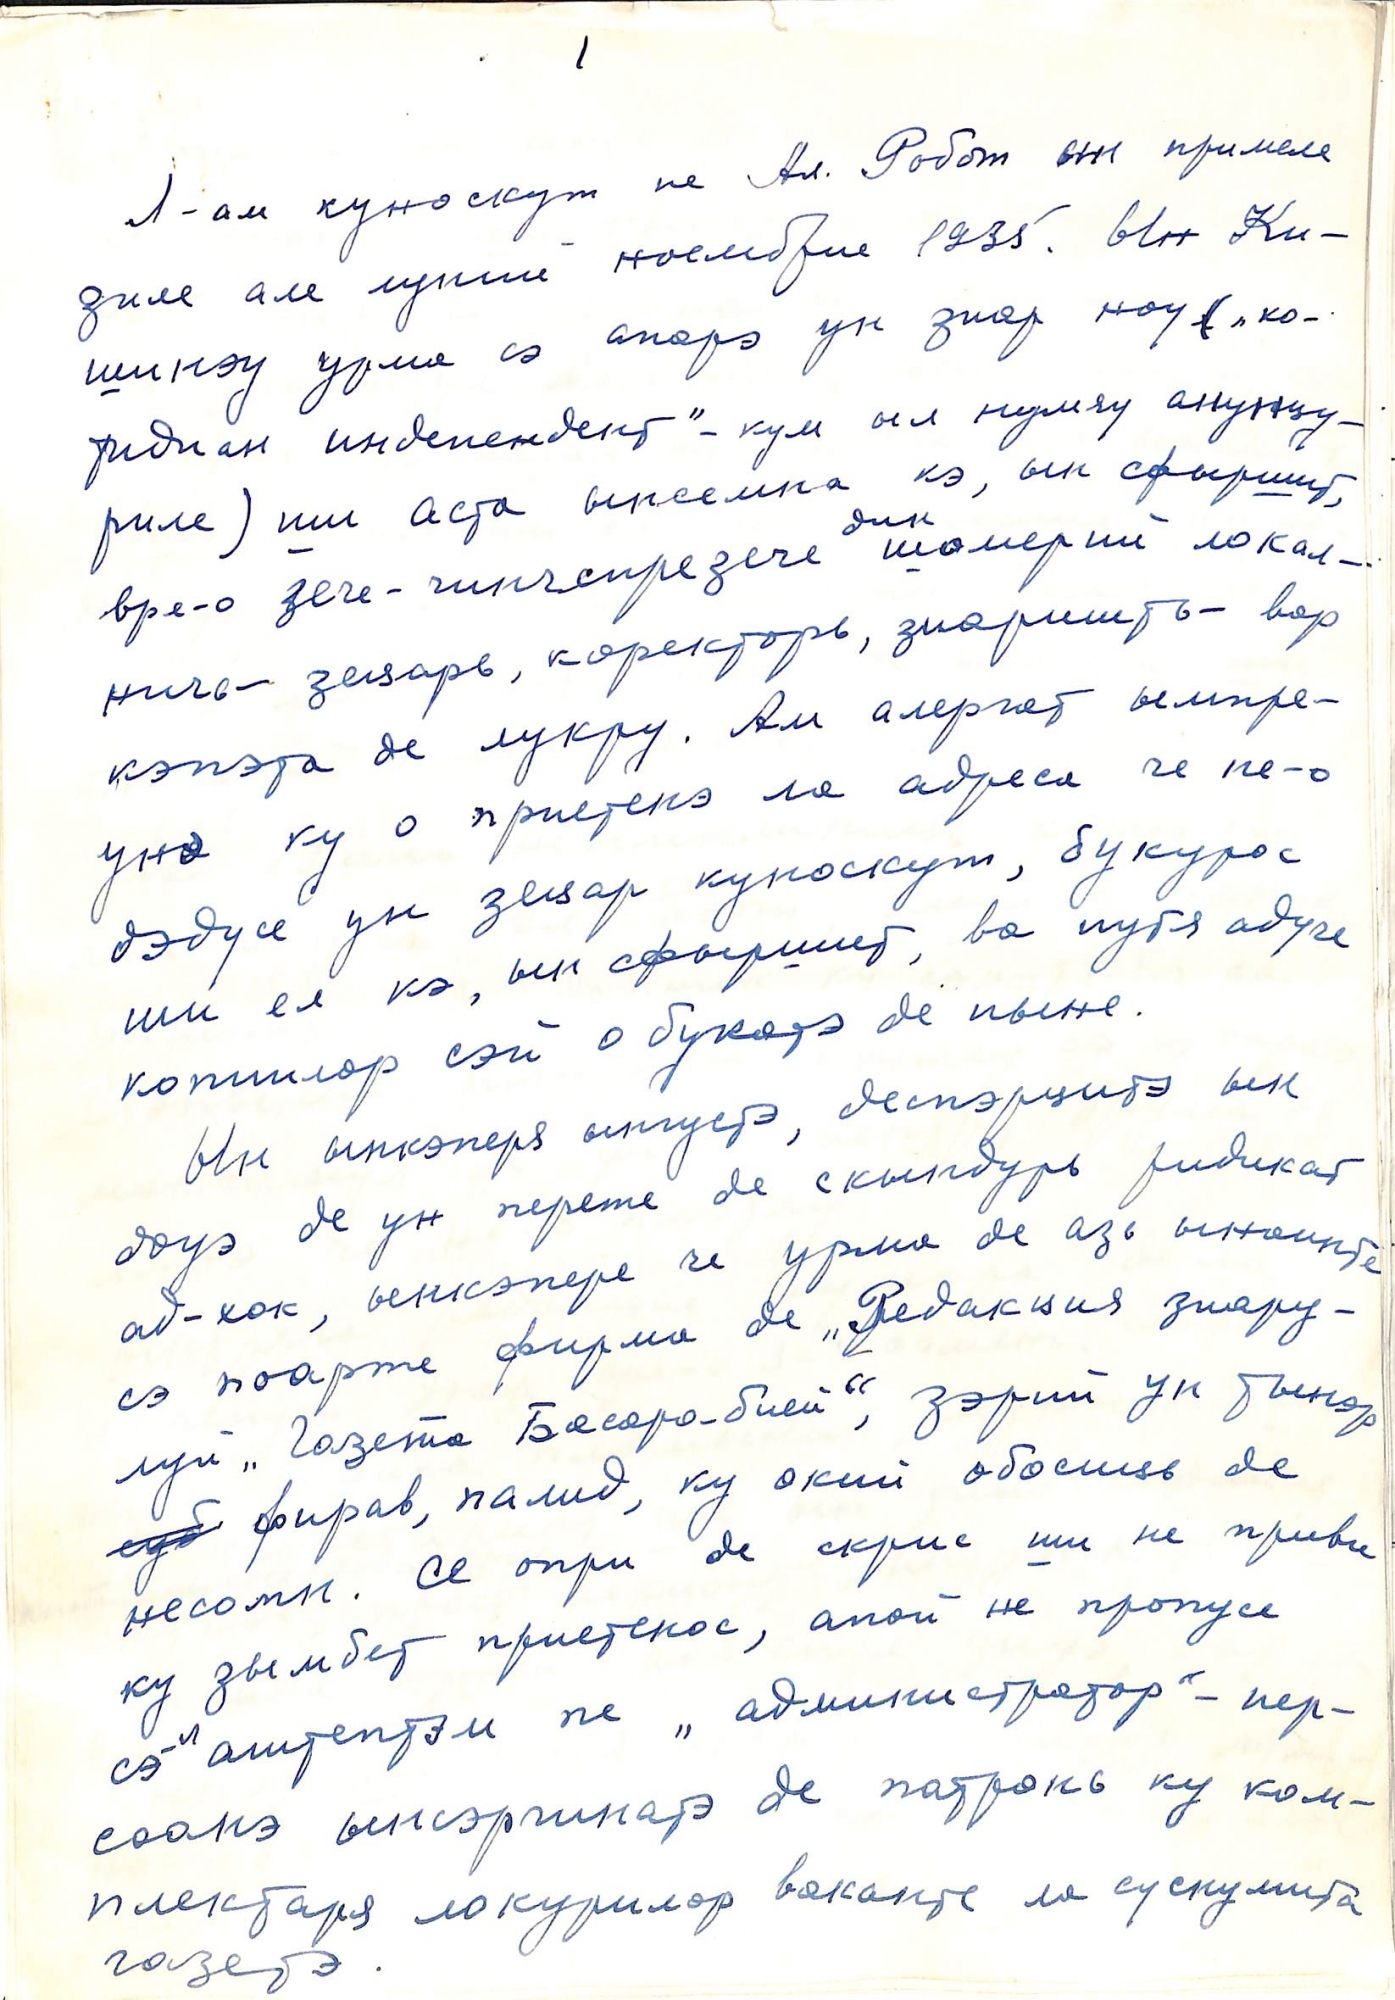 1
Л-ам куноскут пе Ал. Робот ын примеле
зиле але луний ноембрие 1935. Ын Ки-
шинэу урма сэ апарэ ун зиар ноу („ко-
тидиан индепендент” – кум ыл нумяу анунцу-
риле) ши аста ынсемна кэ, ын сфыршит,
вре-о зече-чинчспрезече дин шомерий локал-
ничь – зецарь, коректорь, зиаришть – вор
кэпэта де лукру. Ам алергат ымпре-
унэ ку о приетенэ ла адреса че не-о
дэдусе ун зецар куноскут, букурос
ши ел кэ, ын сфыршит, ва путя адуче
копиилор сэй о букатэ де пыне.
Ын ынкэперя ынгустэ, деспэрцитэ ын
доуэ де ун перете де скындурь ридикат
ад-хок, ынкэпере че урма де азь ынаинте
сэ поарте фирма де „Редакция зиару-
луй „Газета Басара-бией“, зэрий ун тынэр
фирав, палид, ку окий обосиць де
несомн. Се опри де скрис ши не приви
ку зымбет приетенос, апой не пропусе
сэ-л аштептэм пе „администратор“ – пер-
соанэ ынсэрчинатэ де патронь ку ком-
плектаря локурилорваканте ла сускумита
газетэ.